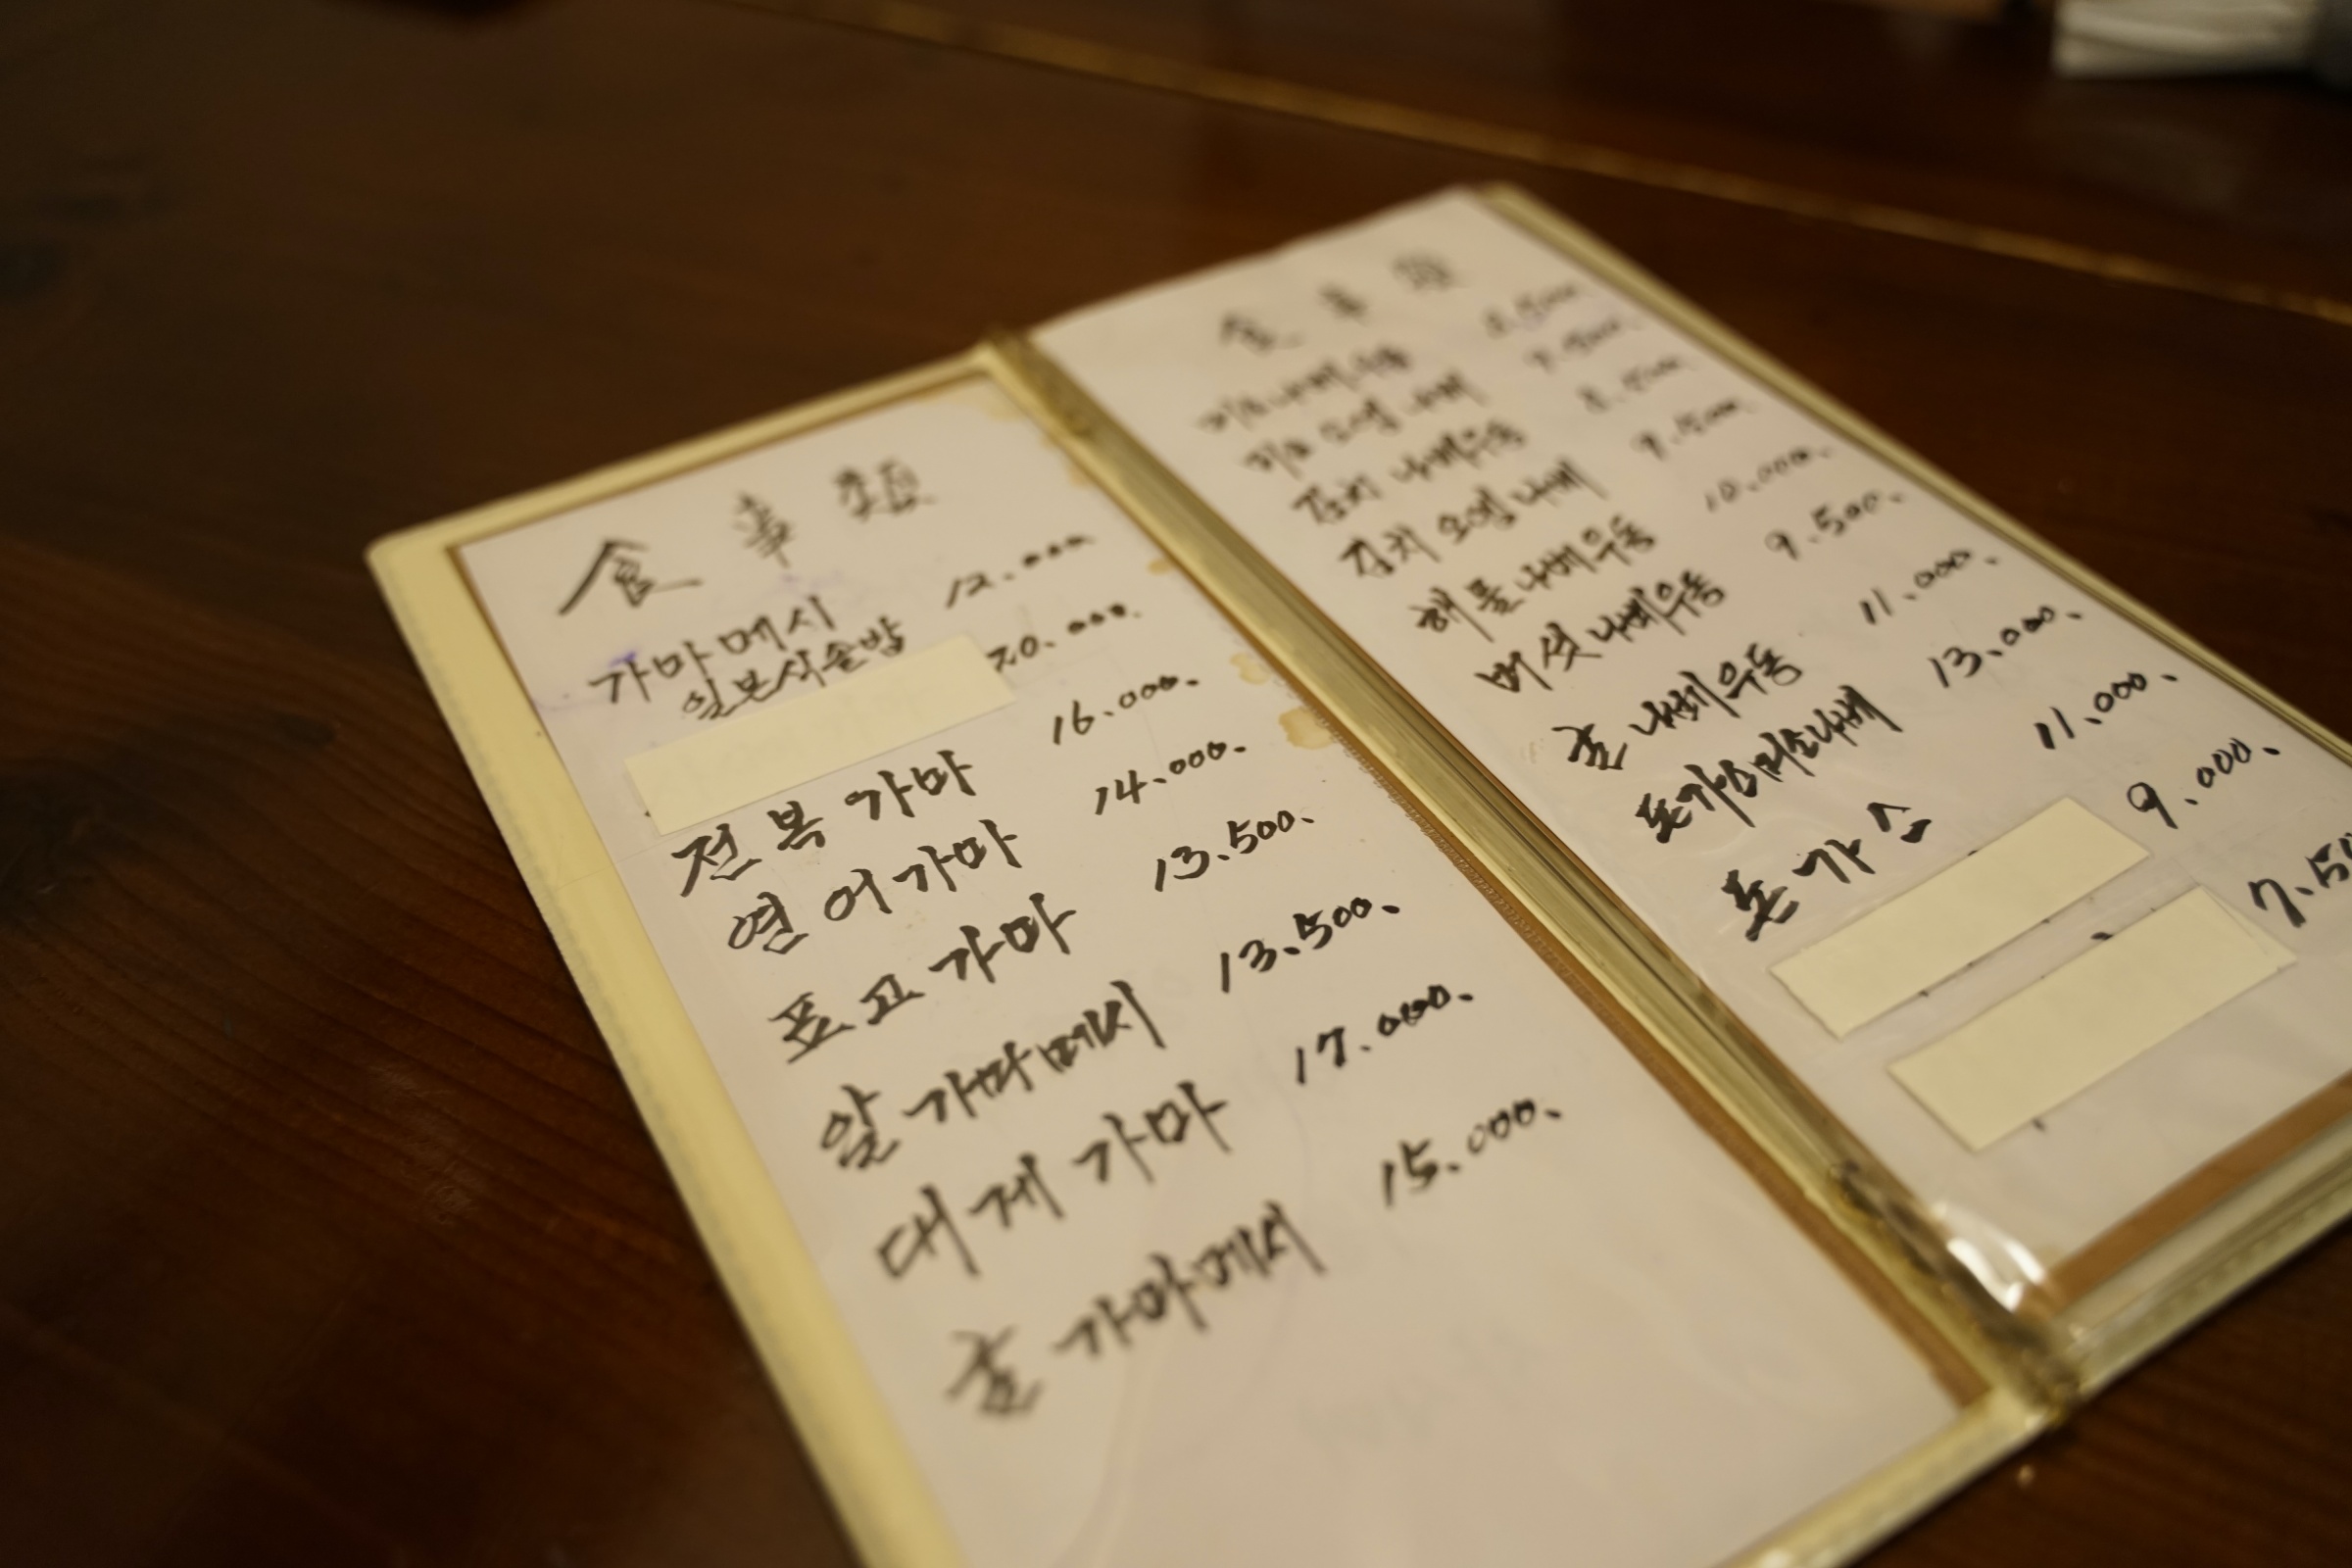 食事類
가마메시 12.000
일본식솥밥
20.000.
전복가마 16.000.
연어가마 14.000.
표고가마 13.500.
알가마메시 13.500.
대게가마 17.000.
굴가마메시 15.000.
食事類
미소나베우동 8.500.
미소오뎅나베 9.500.
김치나베우동 8.500.
김치오뎅나베 9.500.
해물나베우동 10.000.
버섯나베우동 9.500.
굴나베우동 11.000.
돈가스미소나베 13.000.
돈가스 11.000.
9.000.